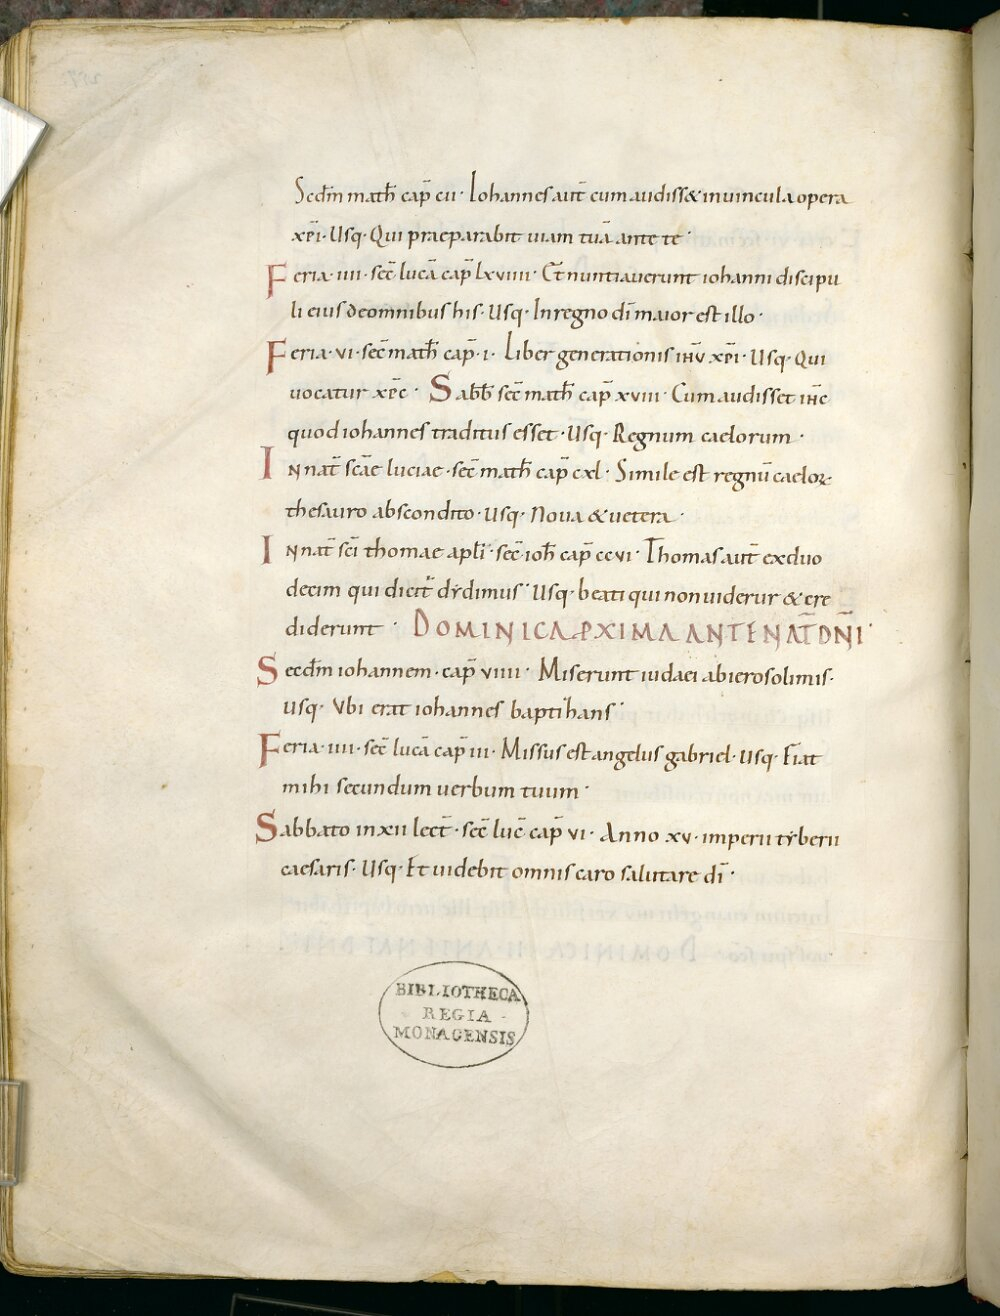 Secdm̄ math̄ cap̄ cii· Iohannes aut̄ cum audiss& in uincula opera
xp̄i· Usq· Qui praeparabit uiam tuā ante te·
Feria· iiii· sec̄ lucā cap̄ lxviiii· Et nuntiauerunt iohanni discipu
li eius de omnibus his· Usq· In regno dī maior est illo·
Feria· vi· sec̄ math̄ cap̄· i· Liber generationis ih̄u xp̄i· Usq· Qui
uocatur xp̄c· Sabb̄ sec̄ math̄ cap̄ xviii· Cum audisset ih̄c
quod iohannes traditus esset· Usq· Regnum caelorum·
In nat̄ scāe luciae· sec̄ math̄ cap̄ cxl· Simile est regnū caelor
thesauro abscondito· Usq· Noua & uetera·
In nat̄ scī thomae aplī· sec̄ ioh̄ cap̄ ccvi· Thomas aut̄ ex duo
decim qui dicit̄ dẏdimus· Usq· beati qui non uiderur & cre
diderunt· DOMINICA PXIMA ANTE NAT̄ DN̄I·
Secdm̄ iohannem· cap̄ viiii· Miserunt iudaei ab ierosolimis·
Usq· Ubi erat iohannes baptihans·
Feria· iiii· sec̄ lucā cap̄ iii· Missus est angelus gabriel· Usq· Fiat
mihi secundum uerbum tuum·
Sabbato in xii lect̄· sec̄ luc̄ cap̄ vi· Anno xv· imperii tẏberii
caesaris· Usq· Et uidebit omnis caro salutare dī·
BIBLIOTHECA
REGIA
MONACENSIS